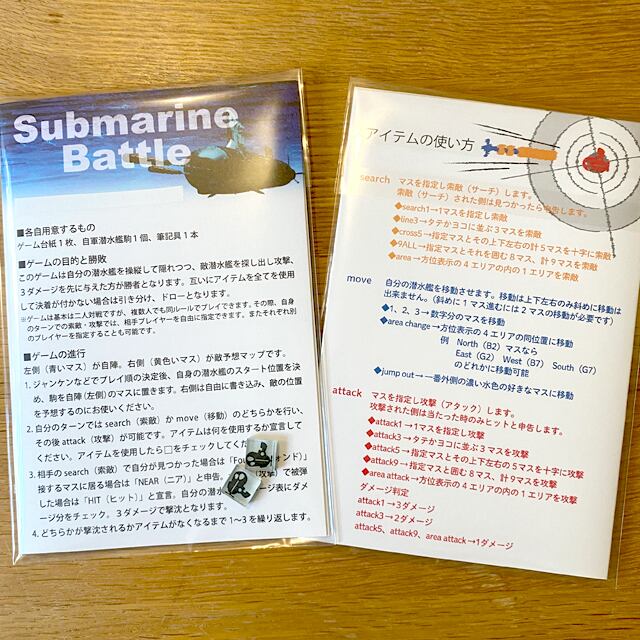 Submarine
Battle
■各自用意するもの
ゲーム台紙1枚、自軍潜水艦駒1個、筆記具1本
■ゲームの目的と勝敗
このゲームは自分の潜水艦を操縦して隠れつつ、敵潜水艦を探し出し攻撃、
3ダメージを先に与えた方が勝者となります。互いにアイテムを全てを使用
して決着が付かない場合は引き分け、ドローとなります。
※ゲームは基本は二人対戦ですが、複数人でも同ルールでプレイできます。その際、自身
のターンでの索敵・攻撃では、相手プレイヤーを自由に指定できます。またそれぞれ別
のプレイヤーを指定することも可能です。
■ゲームの進行
左側（青いマス）が自陣。右側（黄色いマス）が敵予想マップです。
1. ジャンケンなどでプレイ順の決定後、自身の潜水艦のスタート位置を決
め、駒を自陣（左側）のマスに置きます。右側は自由に書き込み、敵の位置
を予想するのにお使いください。
2. 自分のターンでは search（索敵）か move（移動）のどちらかを行い、
その後 attack（攻撃）が可能です。アイテムは何を使用するか宣言して
ください。アイテムを使用したら□をチェックしてくだ
3. 相手の search（索敵）で自分が見つかった場合は「Fou ォンド）」
接するマスに居る場合は「NEAR（ニア）」と申告。 攻撃）で被弾
した場合は「HIT（ヒット）」と宣言。自分の潜水 ージ表にダメ
ージ分をチェック。3ダメージで撃沈となります。
4. どちらかが撃沈されるかアイテムがなくなるまで1〜3を繰り返します。
アイテムの使い方
search マスを指定し索敵（サーチ）します。
索敵（サーチ）された側は見つかったら申告します。
◆search1→1マスを指定し索敵
◆line3→タテかヨコに並ぶ3マスを索敵
◆cross5→指定マスとその上下左右の計5マスを十字に索敵
◆9ALL→指定マスとそれを囲む8マス、計9マスを索敵
◆area→方位表示の4エリアの内の1エリアを索敵
move 自分の潜水艦を移動させます。移動は上下左右のみ斜めに移動は
出来ません。（斜めに1マス進むには2マスの移動が必要です）
◆1、2、3→数字分のマスを移動
◆area change→方位表示の4エリアの同位置に移動
例 North（B2）マスなら
East（G2） West（B7） South（G7）
のどれかに移動可能
◆jump out→一番外側の濃い水色の好きなマスに移動
attack マスを指定し攻撃（アタック）します。
攻撃された側は当たった時のみヒットと申告します。
◆attack1→1マスを指定し攻撃
◆attack3→タテかヨコに並ぶ3マスを攻撃
◆attack5→指定マスとその上下左右の5マスを十字に攻撃
◆attack9→指定マスと囲む8マス、計9マスを攻撃
◆area attack→方位表示の4エリアの内の1エリアを攻撃
ダメージ判定
attack1→3ダメージ
attack3→2ダメージ
attack5、attack9、area attack→1ダメージ